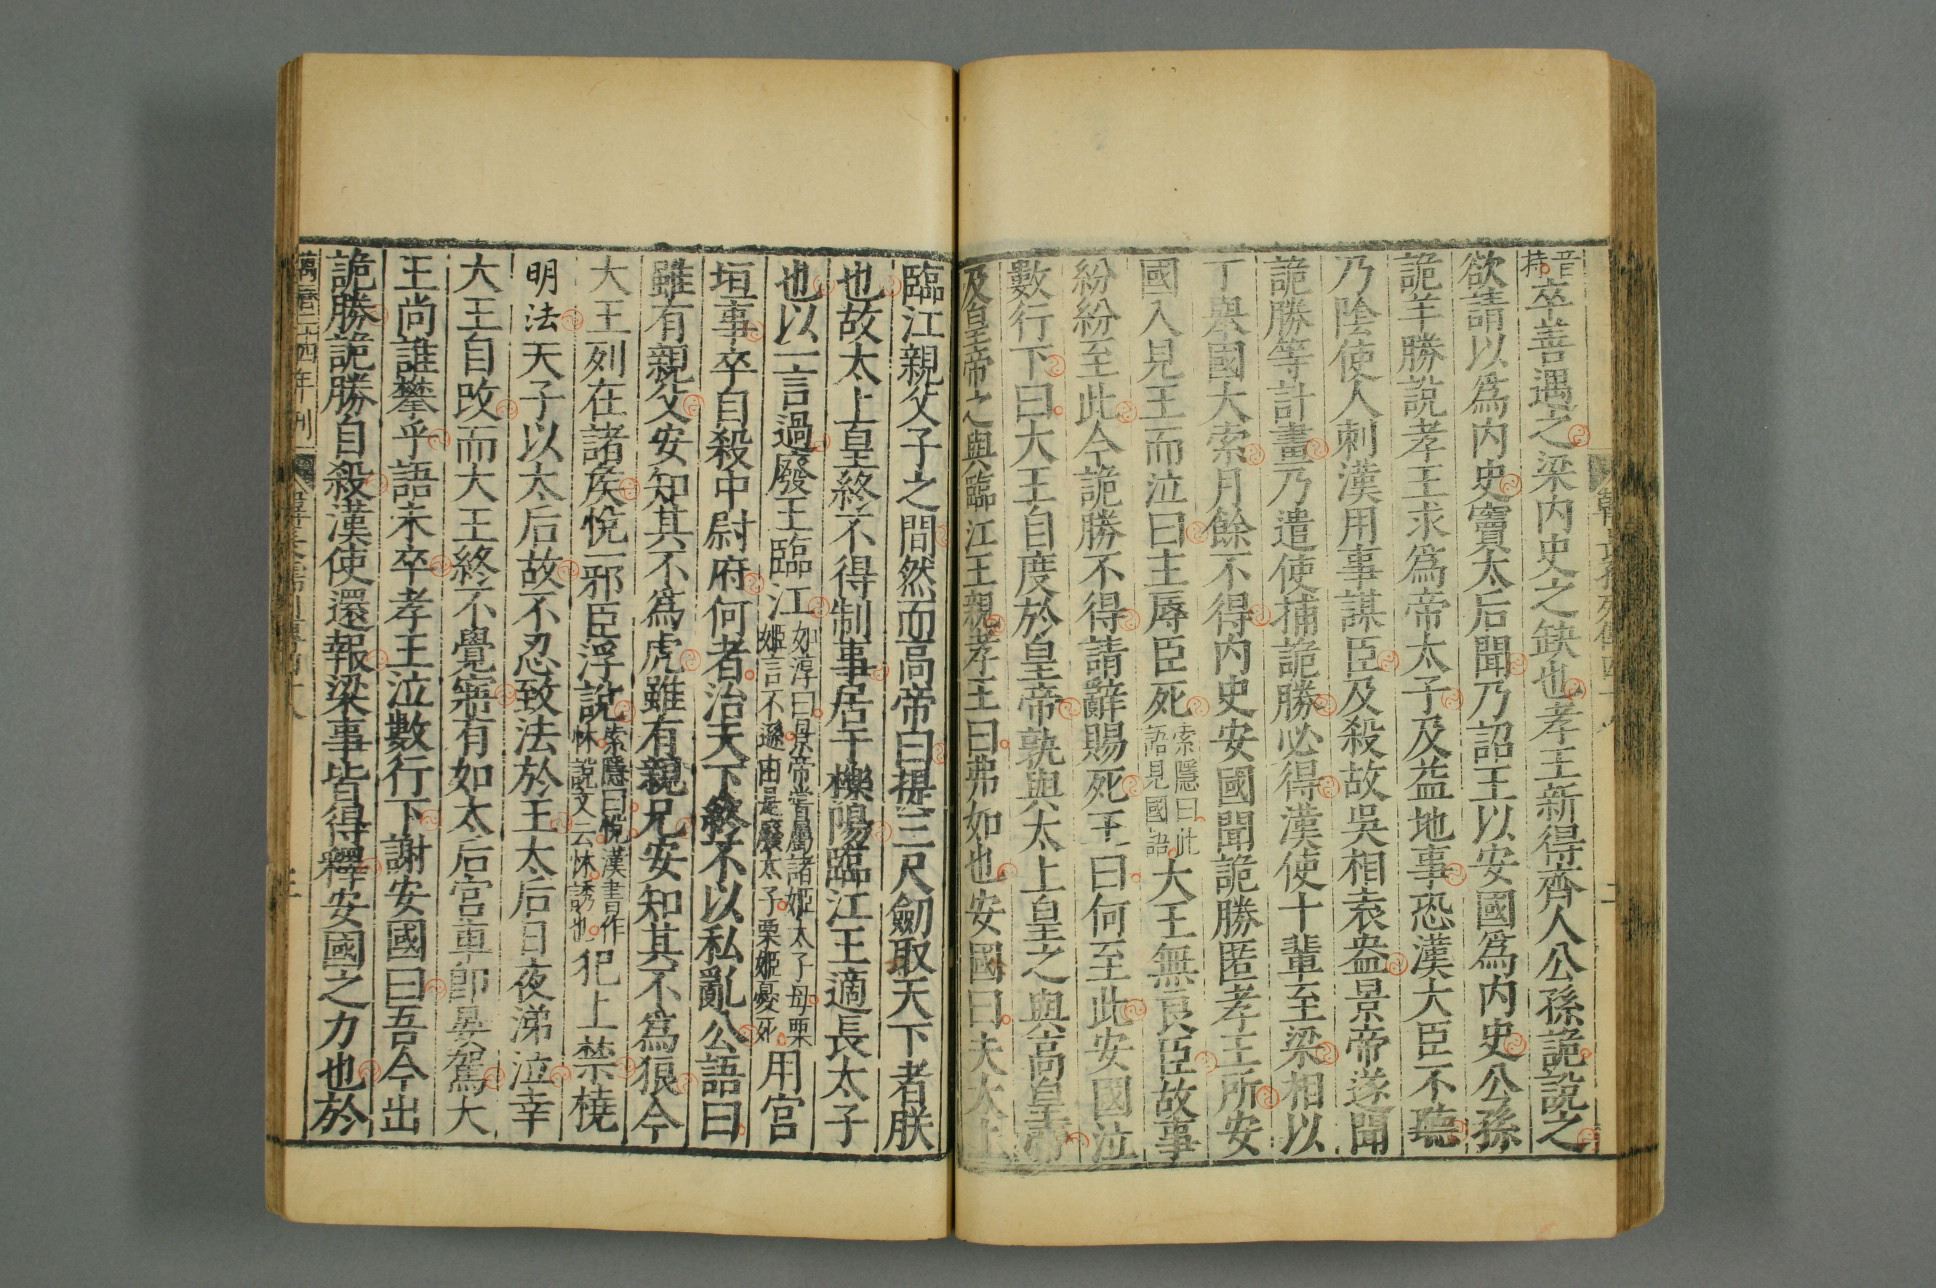 音持卒善遇之梁内史之缺也孝王新得齊人公孫詭說之
欲請以爲内史竇太后聞乃詔王以安國爲内史公孫
詭羊勝說孝王求爲帝太子及益地事恐漢大臣不聽
乃陰使人刺漢用事謀臣及殺故吳相袁盎景帝遂聞
詭勝等計畫乃遣使捕詭勝必得漢使十輩至梁相以
丁舉國大索月餘不得内史安國聞詭勝匿孝王所安
國入見王而泣曰主辱臣死索隱曰此語見國語大王無良臣故事
紛紛至此今詭勝不得請辭賜死王曰何至此安國泣
數行下曰大王自度於皇帝孰與太上皇之與高皇帝
及皇帝之與臨江王親孝王曰弗如也安國曰夫太上
臨江親父子之間然而高帝曰提三尺劒取天下者朕
也故太上皇終不得制事居于櫟陽臨江王適長太子
也以一言過廢王臨江如淳曰景帝嘗屬諸姬太子母栗姬言不遜由是廢太子栗姬憂死用宮
垣事卒自殺中尉府何者治天下終不以私亂公語曰
雖有親父安知其不爲虎雖有親兄安知其不爲狼今
大王列在諸矦悅一邪臣浮說索隱曰悅漢書作怵說文云怵誘也犯上禁橈
明法天子以太后故不忍致法於王太后日夜涕泣幸
大王自改而大王終不覺寤有如太后宮車卽晏駕大
王尚誰攀乎語未卒孝王泣數行下謝安國曰吾今出
詭勝詭勝自殺漢使還報梁事皆得釋安國之力也於
萬曆二十四年刊